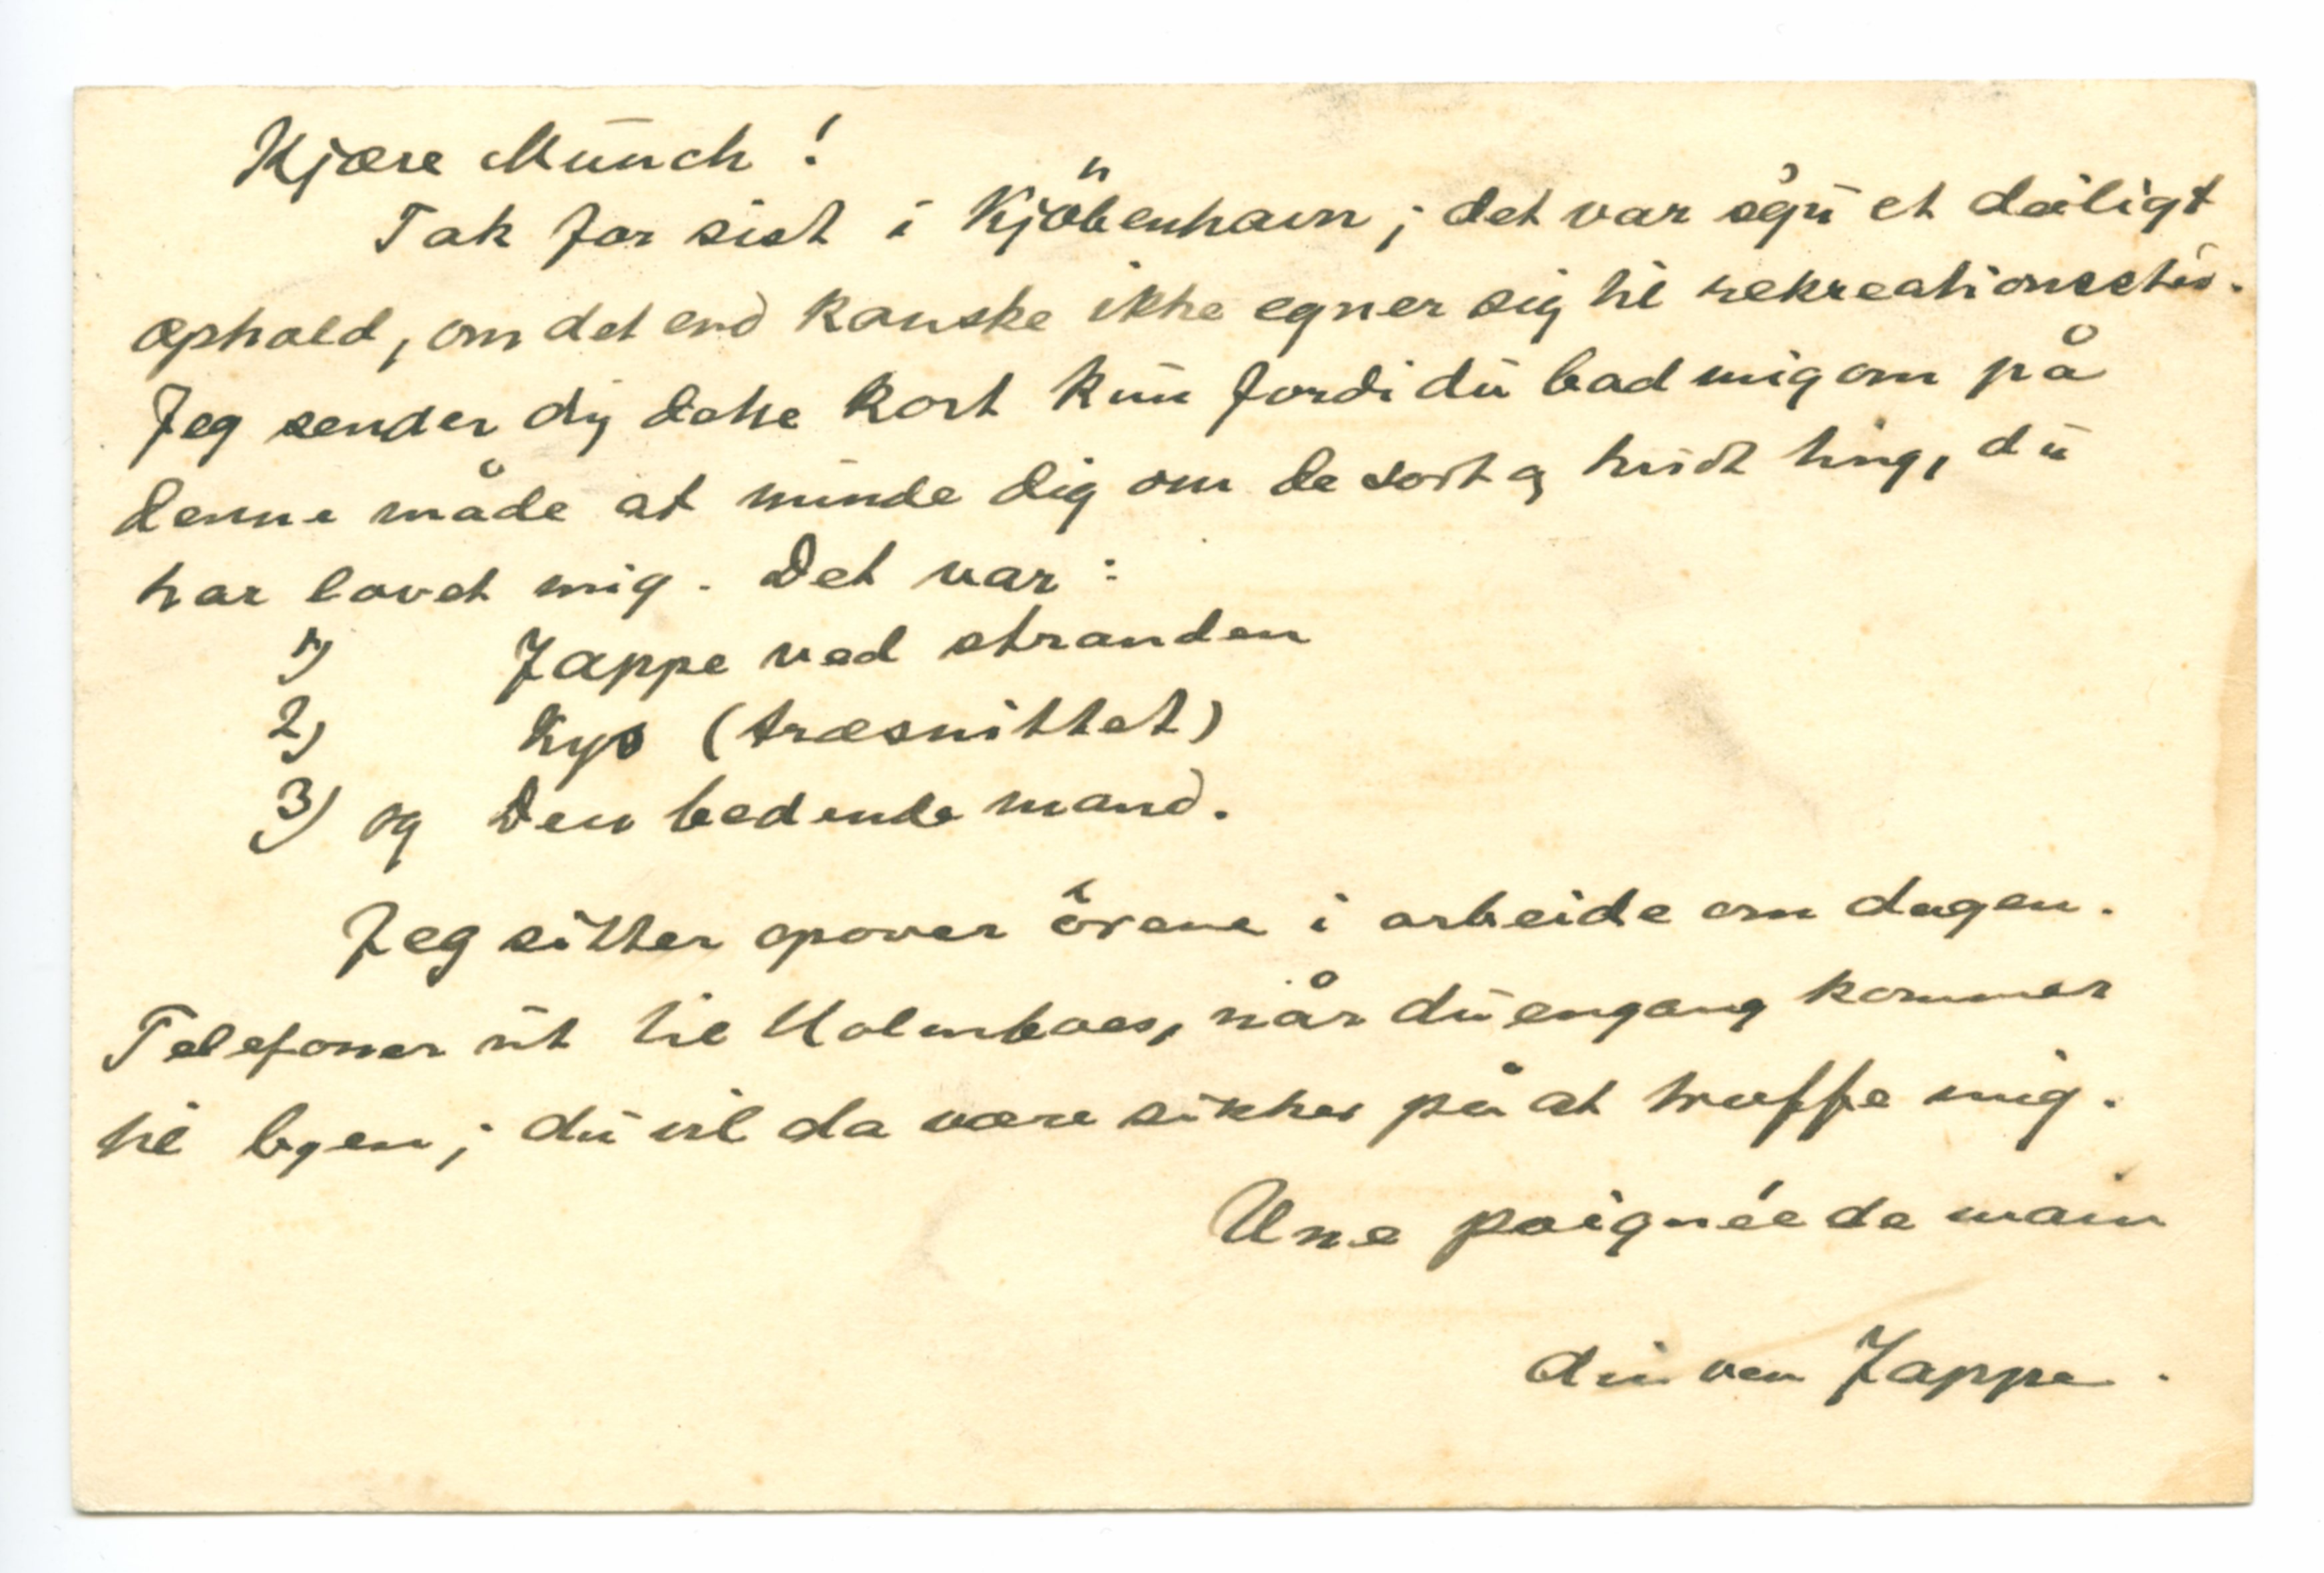 Kjære Munch!
Tak for sist i Kjöbenhavn; det var sgu et deiligt
ophold, om det end kanske ikke egner sig til rekreationssted.
Jeg sender dig dette kort kun fordi du bad mig om på
denne måde at minde dig om de sort og hvidt ting, du
har lovet mig. Det var:
1) Jappe ved stranden
2) Kys (træsnittet)
3) og Den bedende mand.
Jeg sitter opover örene i arbeide om dagen.
Telefoner ut til Holmboes, når du engang kommer
til byen; du vil da være sikker på at træffe mig.
Une poignée de main
din ven Jappe.